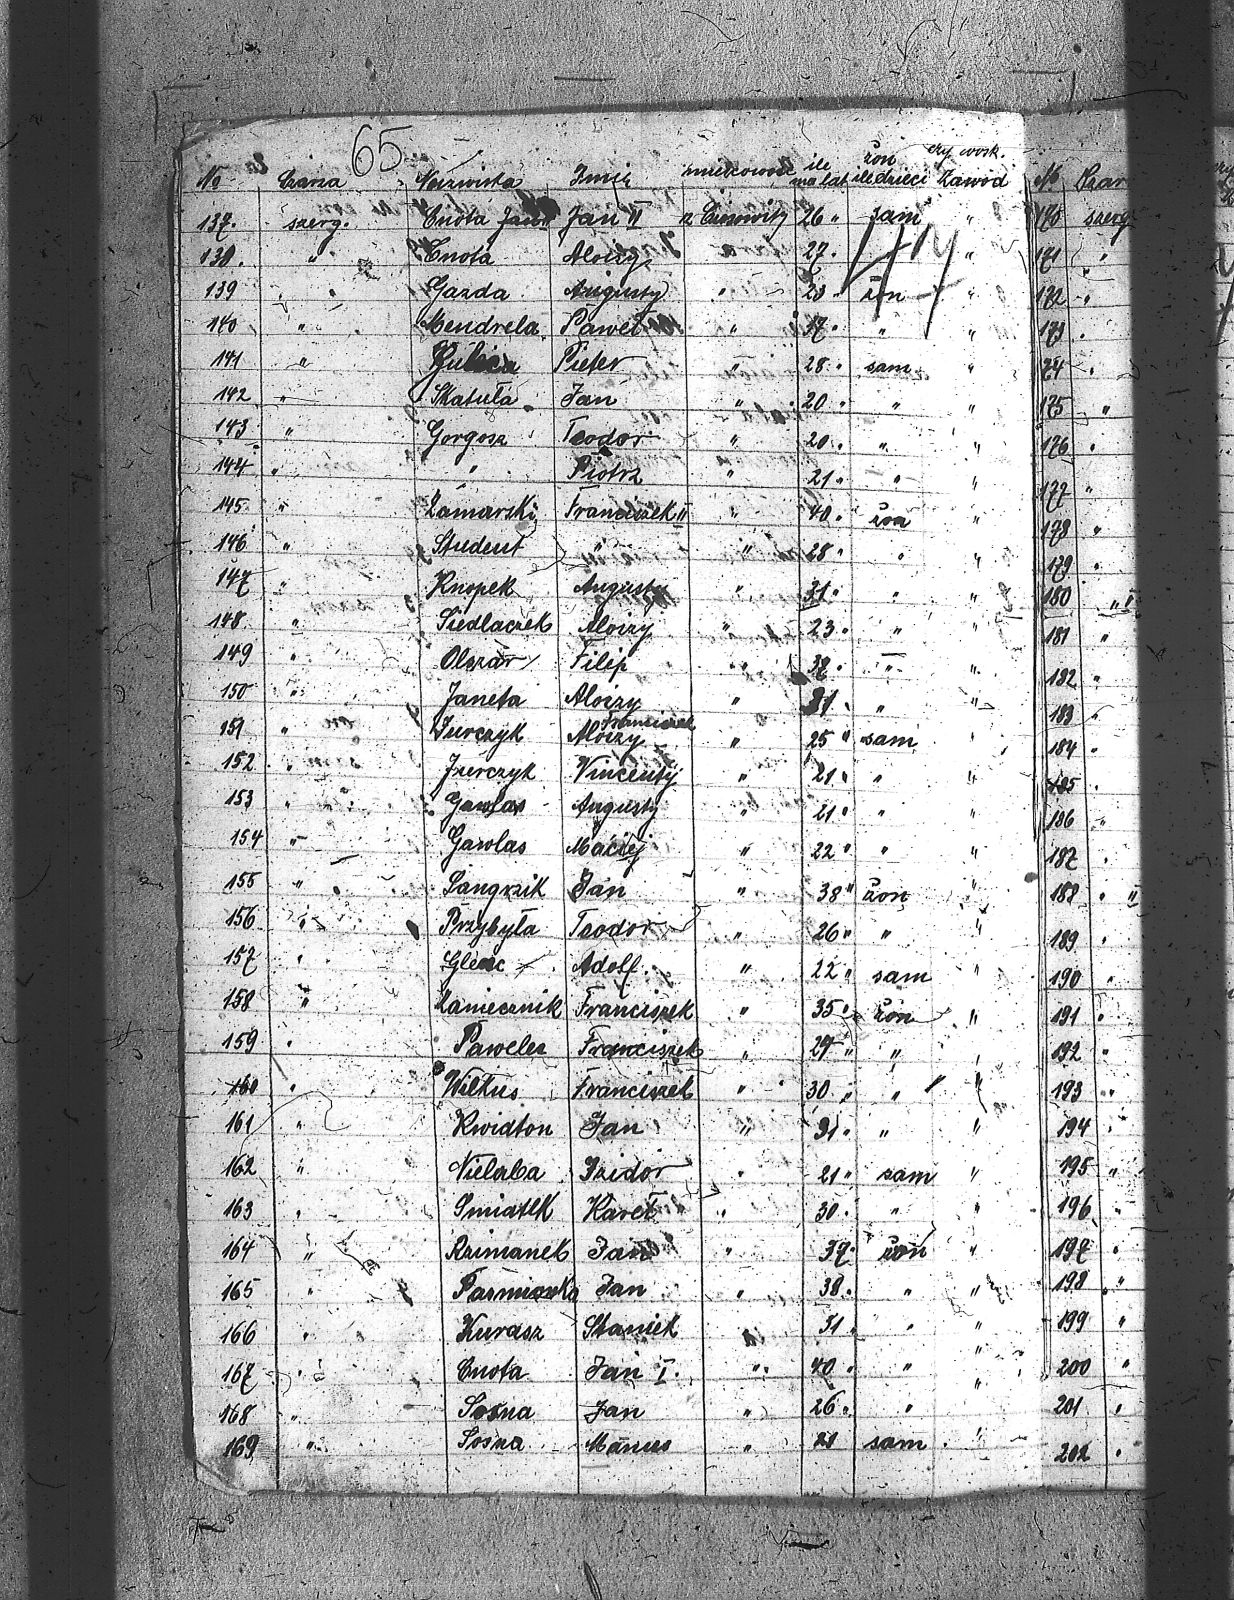 65
No Szarża Nazwiska Imię miescowość ile ma lat żon ile dzieci czy wosk. Zawód No Szar
137. szerg. Cnota Jan II z Cisowity 26 " sam " 170 szerg
138. " Cnota Aloizy 27. " 171 "
139 " Gazda Augusty " 23 żon " 172 "
140 " Mendrela Paweł " 37 " " " 173 "
141 " Pieter " 28 " sam " 174 "
142 " Skatuła Jan " 20 " " " 175 "
143 " Gorgosz Teodor " 20 " " " 176 "
144 " " Piotrz " 21 " " " 177 "
145 " Zamarski Franciszek II " 40 " żon " 178 "
146 " Student " " 28 " " " 179 "
147 " Knopek Augusty " 31 " " " 180 " "
148 " Siedlaczek Aloizy " 23 " " " 181 "
149 " Olszar Filip " 38 " " " 182 "
150 " Janeta Aloizy " 31 " " " 183 "
151 " Jurczyk Franciszek Aloizy " 25 " sam " 184 "
152 " Jurczyk Vincenty " 21 " " " 185 "
153 " Gawlas Augusty " 21 " " " 186 "
154 " Gawlas Maciej " 22 " " " 187 "
155 " Sangrzik Jan " 38 " żon " 188 " II
156 " Przybyła Teodor " 26 " " " 189 "
157 " Glenc Adolf. " 22 " sam " 190 "
158 " Zaniecznik Franciszek " 35 " żon " 191 "
159 " Pawelez Franciszek " 27 " " " 192 "
160 " Wilkus Franciszek " 30 " " " 193 "
161 " Kwidton Jan " 31 " " " 194 "
162 " Nielaba Izidor " 21 " sam " 195 "
163 " Smiatek Kareł " 30 " " " 196 "
164 " Rzimanek Jan " 37 " żon " 197 "
165 " Jan " 38 " " " 198 "
166 " Kurasz Staniek " 31 " " " 199 "
167 " Cnota Jan I. " 40 " " " 200 "
168 " Sosna Jan " 26 " " " 201 "
169 " Sosna " 21 sam " 202 "